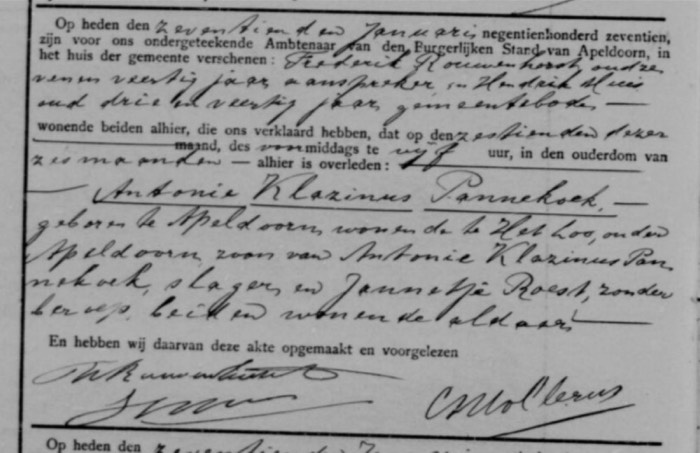 Op heden den zeventienden Januari negentienhonderd zeventien,
zijn voor ons ondergeteekende Ambtenaar van den Burgerlijken Stand van Apeldoorn, in
het huis der gemeente verschenen: Frederik Rouwenhorst, oud ze
ven en veertig jaar aanspreker, en Hendrik Huis
oud drie en veertig jaar, gemeentebode —
wonende beiden alhier, die ons verklaard hebben, dat op den zestienden dezer
maand, des voormiddags te vijf uur, in den ouderdom van
zes maanden — alhier is overleden:
— Antonie Klazinus Pannekoek, —
geboren te Apeldoorn, wonende te Het Loo, onder
Apeldoorn, zoon van Antonie Klazinus Pan
nekoek, slager, en Jannetje Roest, zonder
beroep, beiden wonende aldaar. —
En hebben wij daarvan deze akte opgemaakt en voorgelezen
Op heden den zeventienden